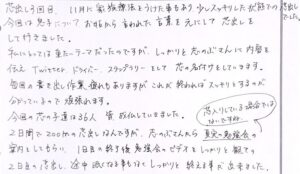 芯出し3回目、11月に家族療法をうけた事もあり少しスッキリした状態での芯出しでした
今回の息子について おすもから言われた言葉を元にして芯出しを
して行きました。
私にとっては重たいテーマだったのですが、しっかりと芯のぶさんに内容を
伝え Twitter、ドライバー、スタップラリーとして芯の名付けをしていきます。
毎回の書き出し作業、疲れもありますが これが終わればスッキリとするのが
分かっているので頑張れます。
今回の芯の子達は36人 賛成仏していきました。
2日間で200mの芯出しなんですが、芯のぶさんから真実の勉強会の
芯入りしている場合では
ないですね
案内をしてもらい、1日目の終了後 勉強会のビデオをしっかりと観ての
2日目の芯出し、途中 眠くなる事もなくしっかりと終える事が出来ました。